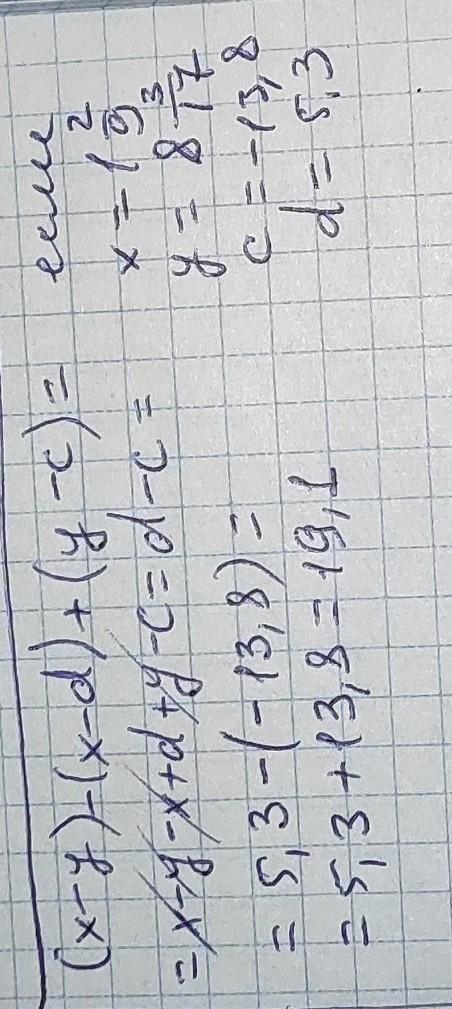 (x-y)-(x-d)+(y-c)=
=x-y-x+d+y-c=d-c=
=5,3-(-13,8)=
=5,3+13,8=19,1
если
x=1 2/9
y=8 3/17
c=-13,8
d=5,3